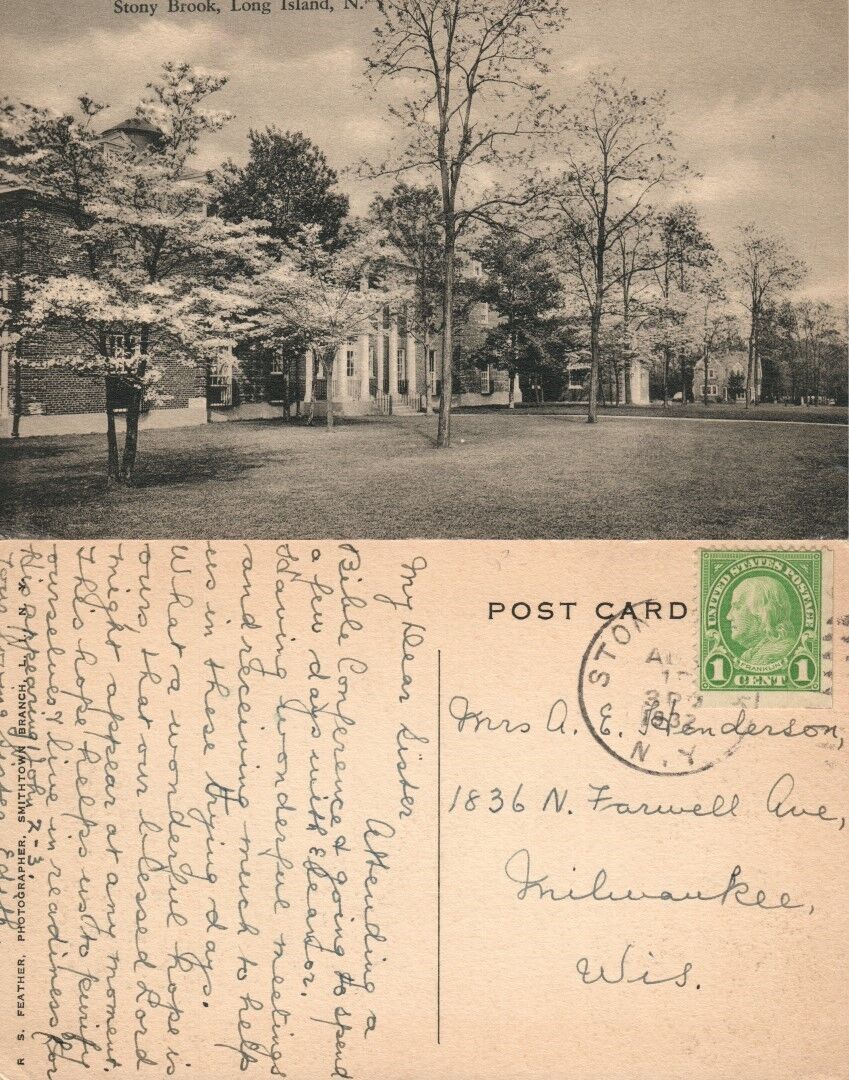 Stony Brook, Long Island, N.
POST CARD
UNITED STATES POSTAGE
FRANKLIN
1 CENT 1
STON
N.Y.
1932
Mrs A. E. Henderson,
1836 N. Farwell Ave,
Milwaukee,
Wis.
My Dear Sister
Attending a
Bible Conference & going to spend
a few days with Eleanor.
Having wonderful meetings
and receiving much to help
us in these trying days.
What a wonderful hope is
ours that our blessed Lord
might appear at any moment.
This hope helps us to purify
ourselves & live in readiness for
His appearing John 2-3.
loving sister Edith
R. S. FEATHER, PHOTOGRAPHER, SMITHTOWN BRANCH, L. I., N. Y.